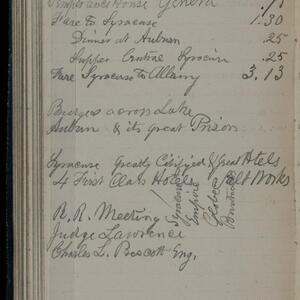 Temperance House Geneva .75
Fare to Syracuse 1.30
Dinner at Auburn .25
Supper Central Syracuse .25
Fare Syracuse to Albany 3.13
Bridges across Lake
Auburn & its great Prison
Syracuse Greatly Citified & Great Hotels
4 First Class Hotels Salt Works
Syracuse
Empire
Globe
R. R. Meeting
Judge Lawrence
Charles L. Prescott Eng.